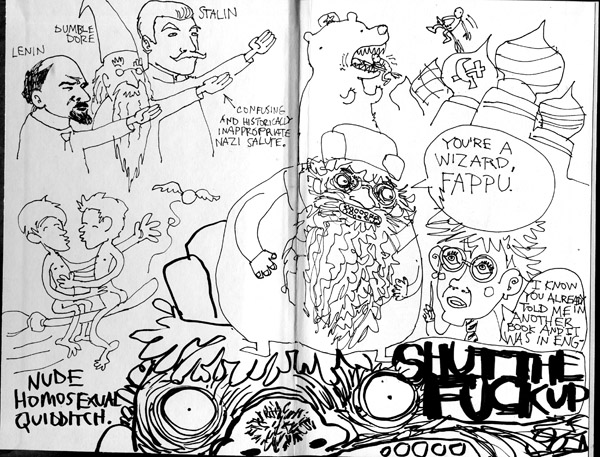 LENIN
DUMBLE
DORE
STALIN
CONFUSING
AND HISTORICALLY
INAPPROPRIATE
NAZI SALUTE.
YOU'RE A
WIZARD,
FAPPU.
I KNOW
YOU ALREADY
TOLD ME IN
ANOTHER
BOOK AND IT
WAS IN ENG-
NUDE
HOMOSEXUAL
QUIDDITCH.
SHUT THE
FUCK UP